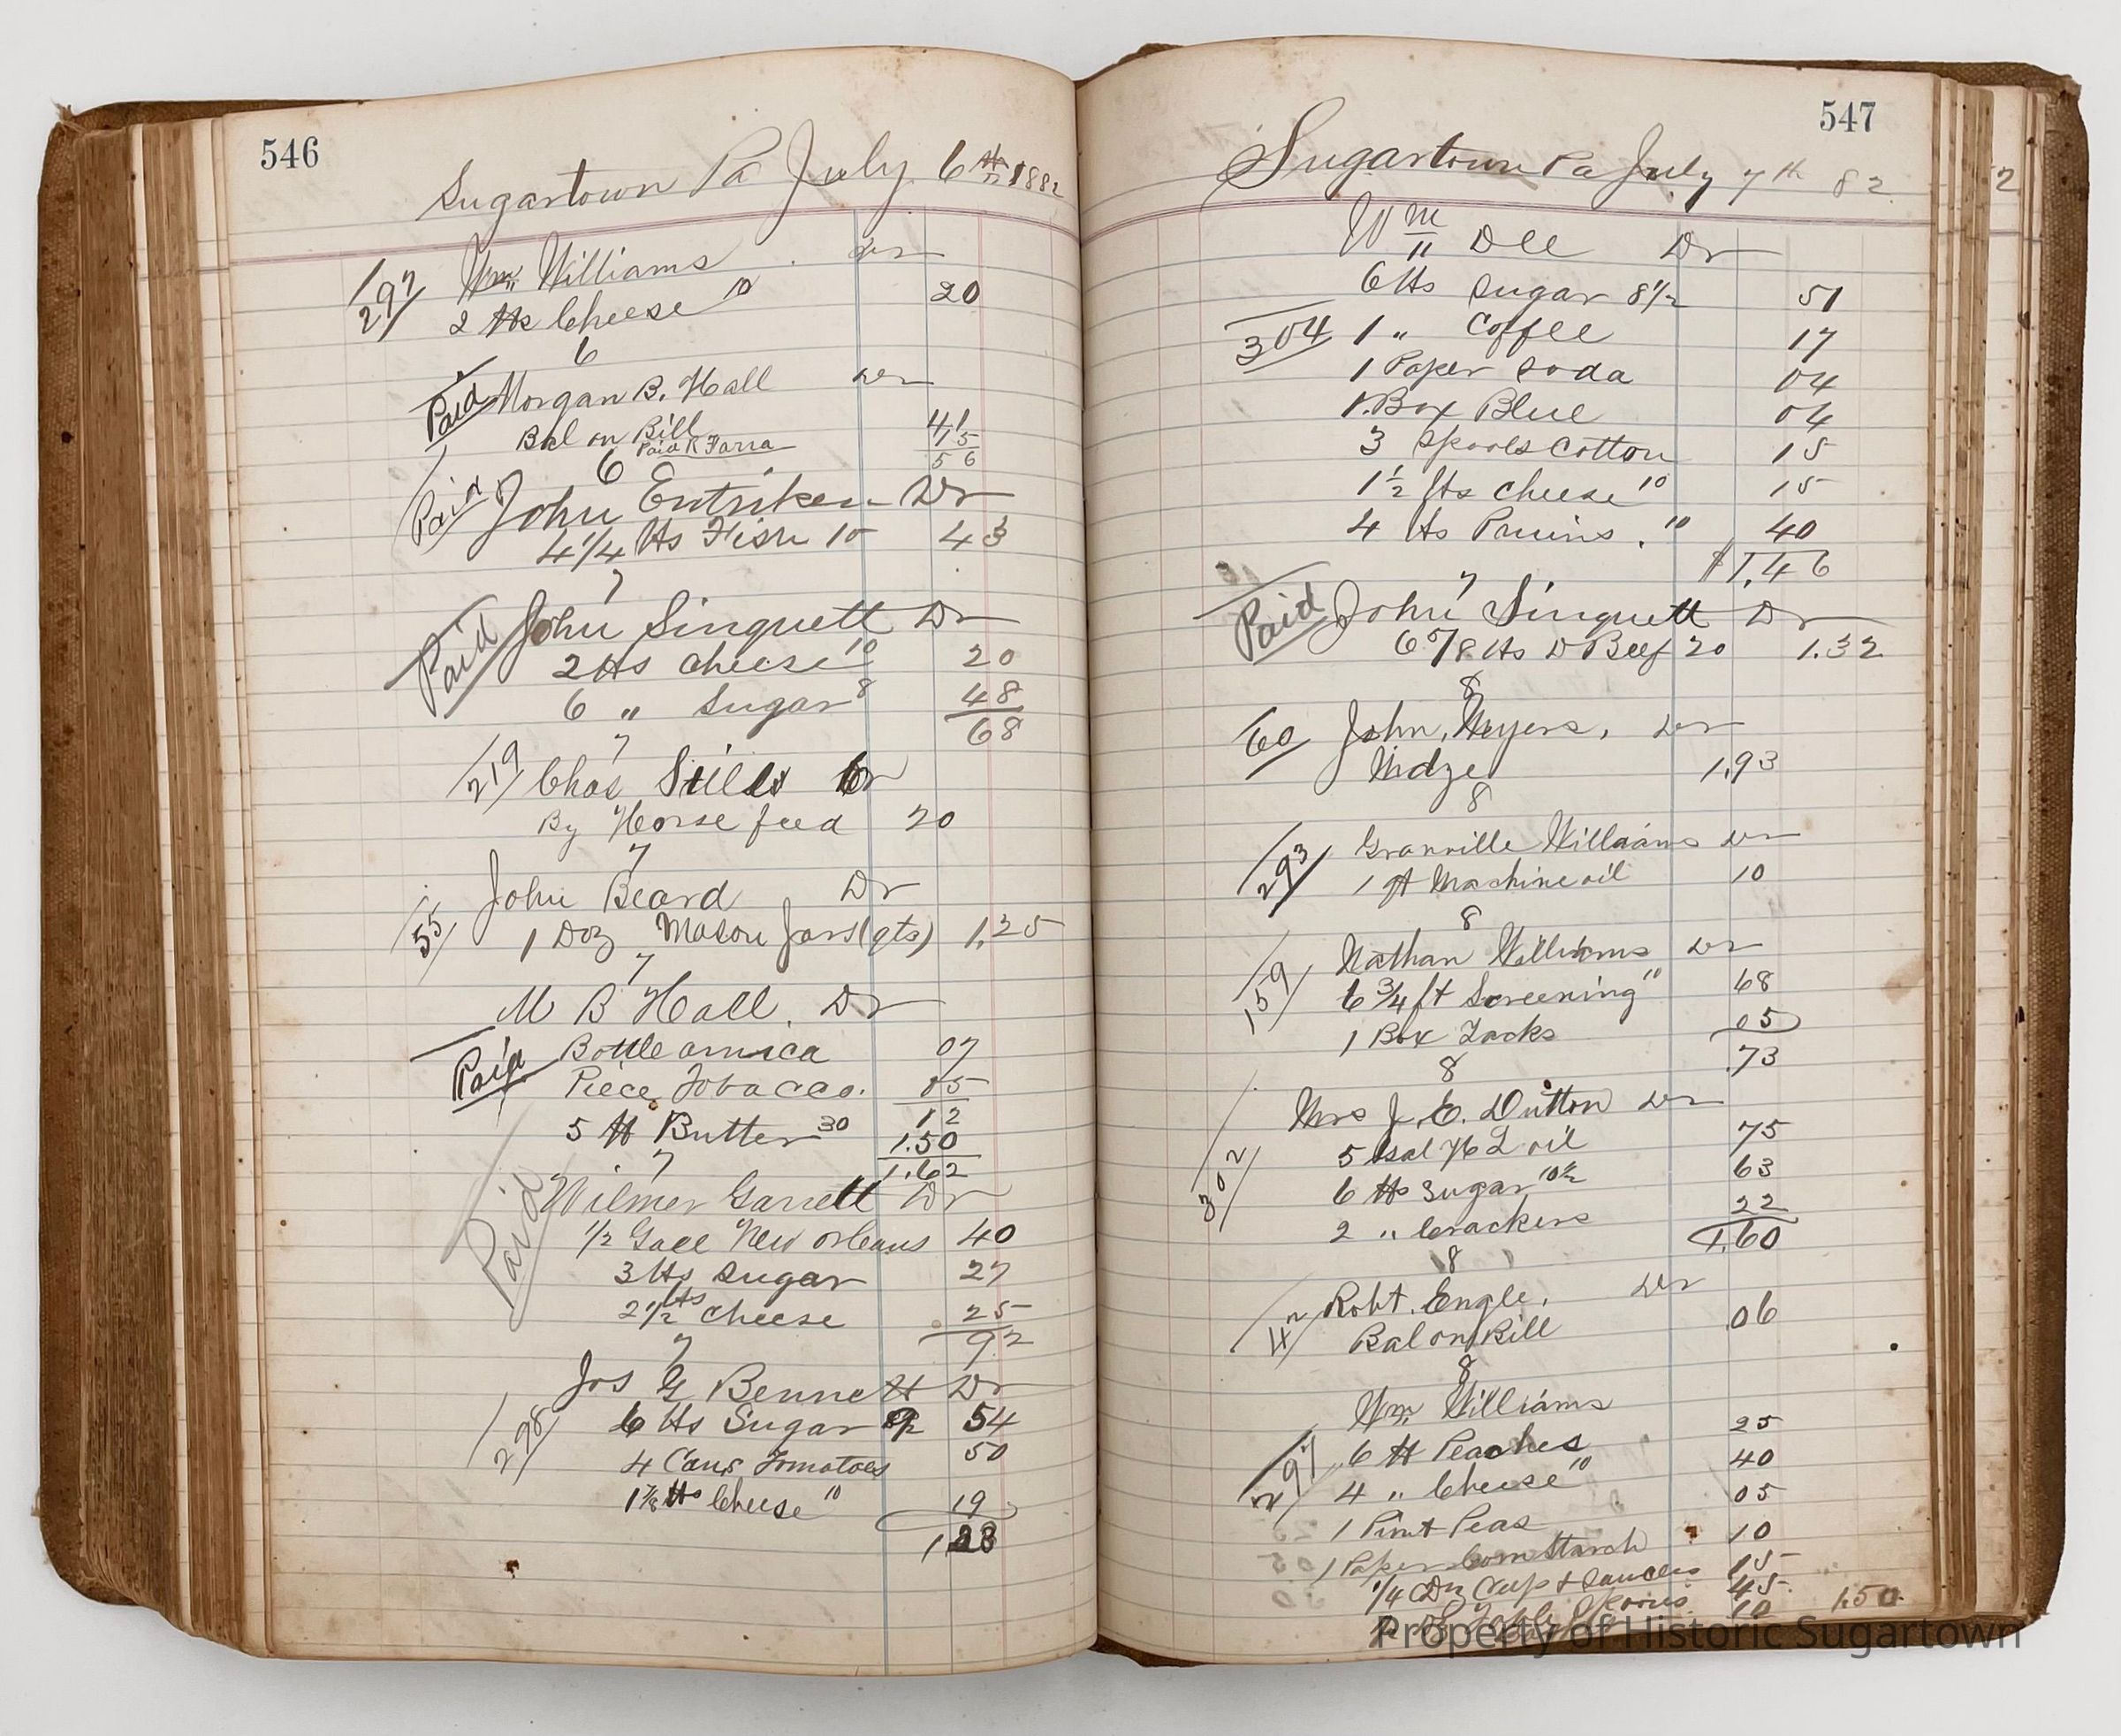 546
Sugartown Pa July 6th 1882
297 Wm Williams Dr
2 lbs Cheese 10 20
6
Paid Morgan B. Hall Dr
Bal on Bill 41
Paid R Farra 15
56
6
Paid John Entriken Dr
4 1/4 lbs Fish 10 43
7
Paid John Singuett Dr
2 lbs cheese 10 20
6 " Sugar 8 48
68
7
219 Chas Stills Cr
By Horse feed 20
7
John Beard Dr
55 1 Doz Mason Jars (qts) 1.25
7
M B Hall. Dr
Paid Bottle arnica 07
Piece Tobacco. 05
12
5 lb Butter 30 1.50
1.62
7
Paid Wilmer Garrett Dr
1/2 Gall New Orleans 40
3 lbs Sugar 27
2 1/2 lbs cheese 25
92
7
Jos G Bennett Dr
298 6 lbs Sugar 54
4 Cans Tomatoes 50
1 7/8 lbs Cheese 10 19
1.23
547
Sugartown Pa July 7th 82
2
Wm Dll Dr
6 lbs Sugar 8 1/2 51
304 1 " Coffee 17
1 Paper Soda 04
1 Box Blue 04
3 Spools Cotton 15
1 1/2 lbs cheese 10 15
4 lbs 10 40
$1.46
7
Paid John Singuett Dr
6 5/8 lbs D Beef 20 1.32
8
60 John Meyers. Dr
Mdze 1.93
8
293 Granville Williams Dr
1 pt Machine oil 10
8
159 Nathan Williams Dr
6 3/4 ft Screening 10 68
1 Box Tacks 05
.73
8
Mrs J. E. Dutton Dr
302 5 Gal H L oil 75
6 lbs Sugar 10 1/2 63
2 " Crackers 22
1.60
8
42 Robt. Engle. Dr
Bal on Bill .06
8
Wm Williams
297 6 lb Peaches 25
4 " Cheese 10 40
1 Pint Peas 05
1 Paper Corn Starch 10
1/4 Dz Cups & Saucers 15
45
Table Spoons 10 1.50
Property of Historic Sugartown